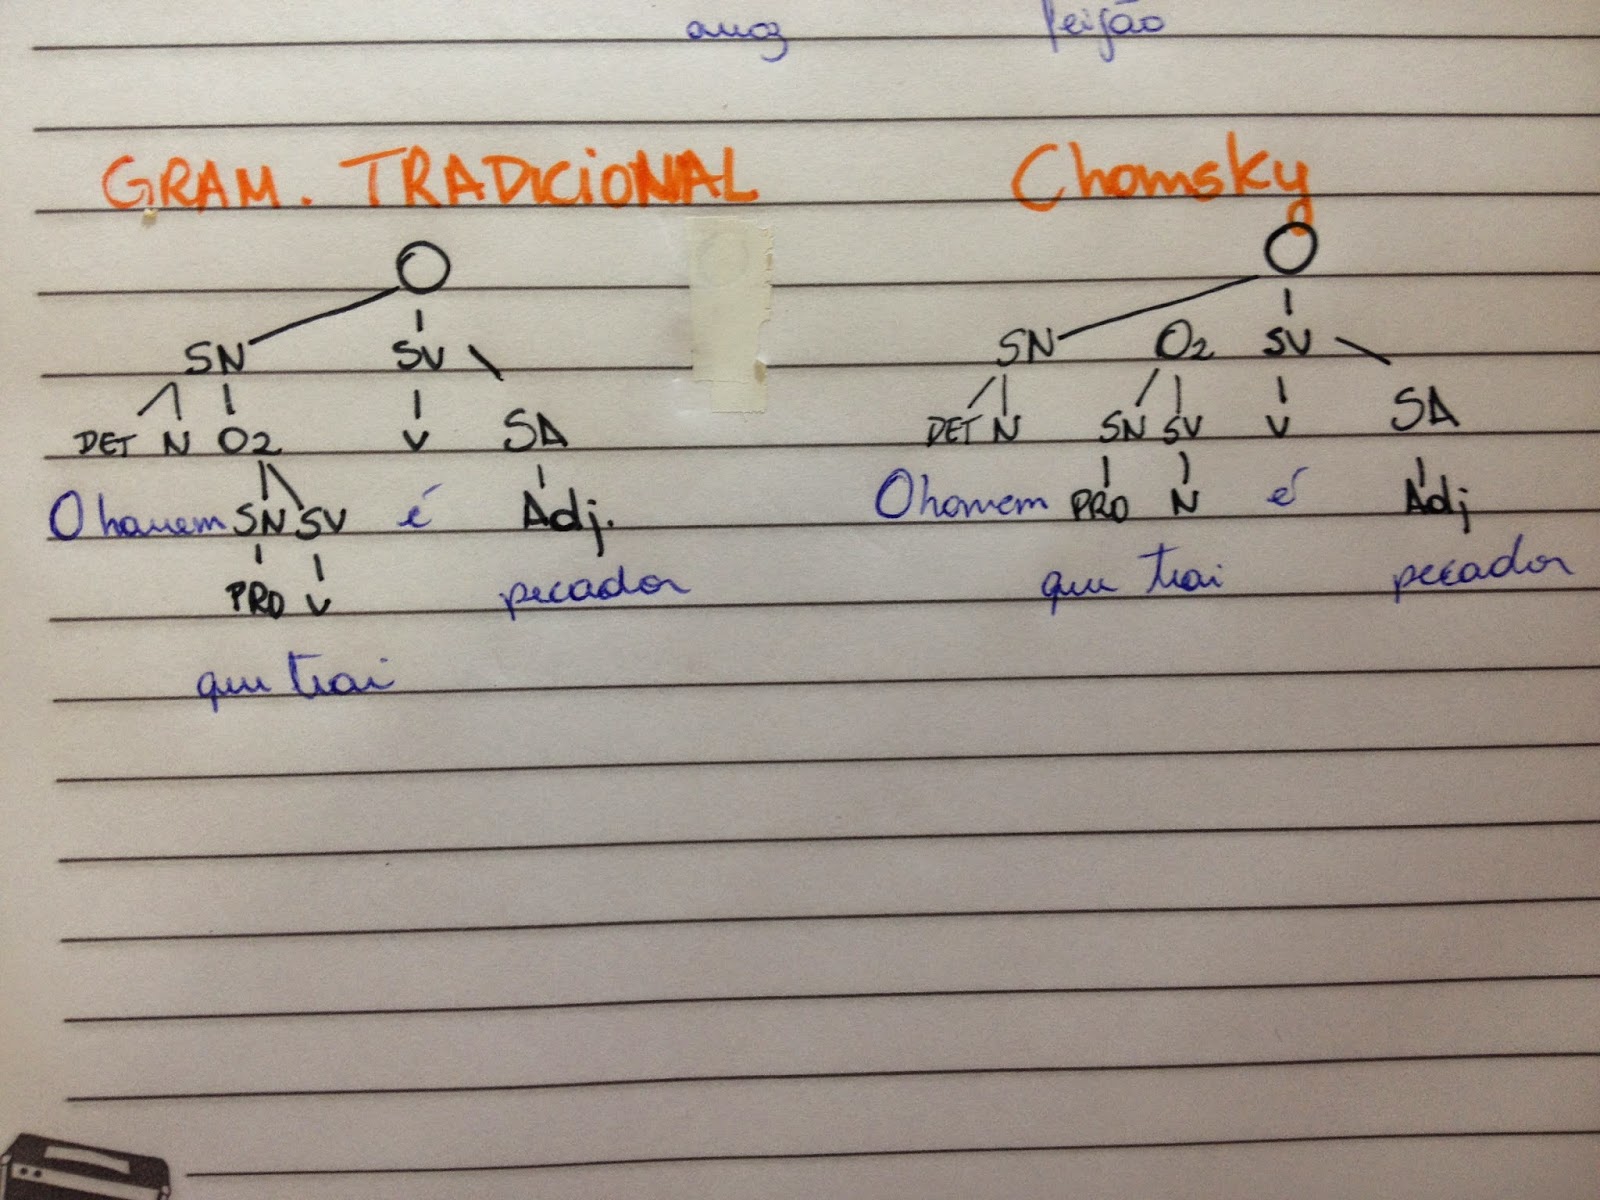 arroz feijão
GRAM. TRADICIONAL Chomsky
O O
SN SV SN O2 SV
DET N O2 V SA DET N SN SV V SA
O homem SN SV é Adj. O homem PRO N é Adj
PRO V pecador que trai pecador
que trai